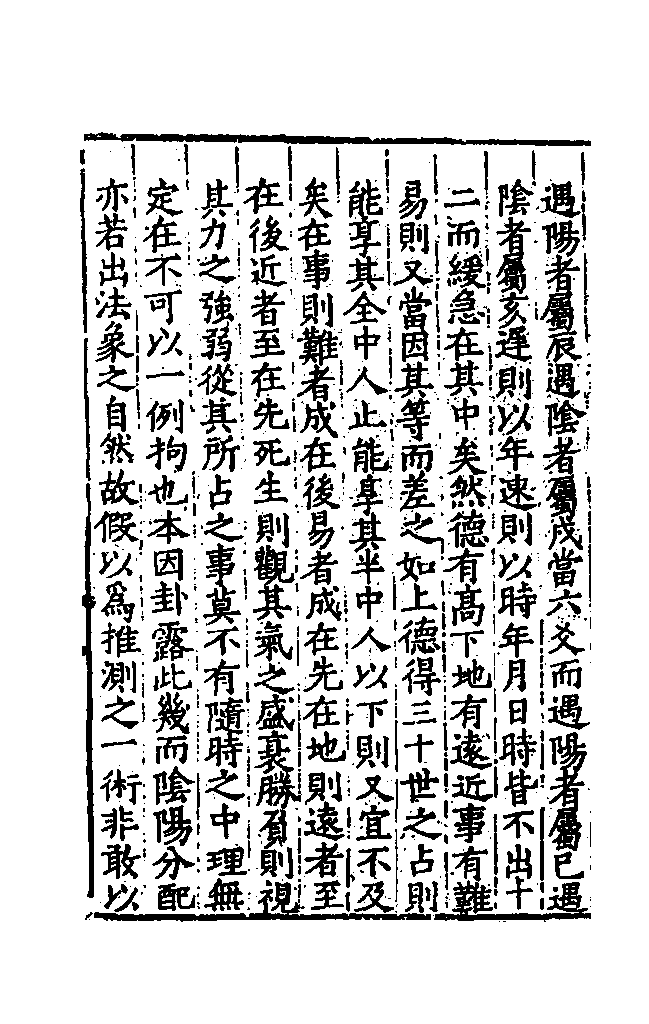 遇陽者屬辰遇陰者屬戍當六爻而遇陽者屬巳遇
陰者屬亥遲則以年速則以時年月日時皆不出十
二而緩急在其中矣然德有高下地有遠近事有難
易則又當因其等而差之如上德得三十世之占則
能享其全中人止能享其半中人以下則又宜不及
矣在事則難者成在後易者成在先在地則遠者至
在後近者至在先死生則觀其氣之盛衰勝負則視
其力之強弱從其所占之事莫不有隨時之中理無
定在不可以一例拘也本因卦露此幾而陰陽分配
亦若出法象之自然故假以為推測之一術非敢以